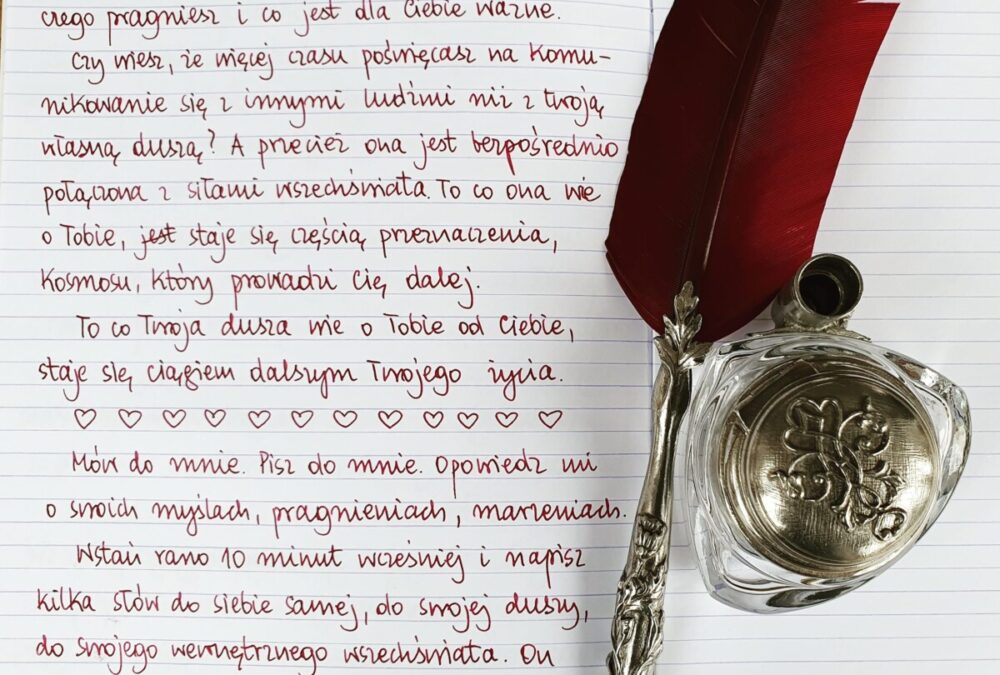 czego pragniesz i co jest dla Ciebie ważne.
Czy wiesz, że więcej czasu poświęcasz na komu-
nikowanie się z innymi ludźmi niż z twoją
własną duszą? A przecież ona jest bezpośrednio
połączona z siłami wszechświata. To co ona wie
o Tobie, jest staje się częścią przeznaczenia,
kosmosu, który prowadzi Cię dalej.
To co Twoja dusza wie o Tobie od Ciebie,
staje się ciągiem dalszym Twojego życia.
♡ ♡ ♡ ♡ ♡ ♡ ♡ ♡ ♡ ♡ ♡ ♡
Mów do mnie. Pisz do mnie. Opowiedz mi
o swoich myślach, pragnieniach, marzeniach.
Wstań rano 10 minut wcześniej i napisz
kilka słów do siebie samej, do swojej duszy,
do swojego wewnętrznego wszechświata. On